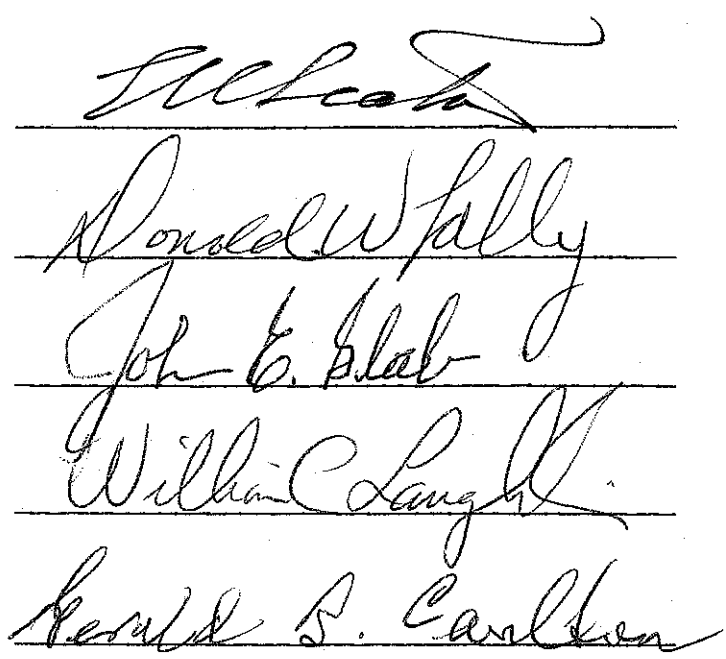 Donald W Lally
John E. Glab
William C Laughlin
Gerald S. Carlton